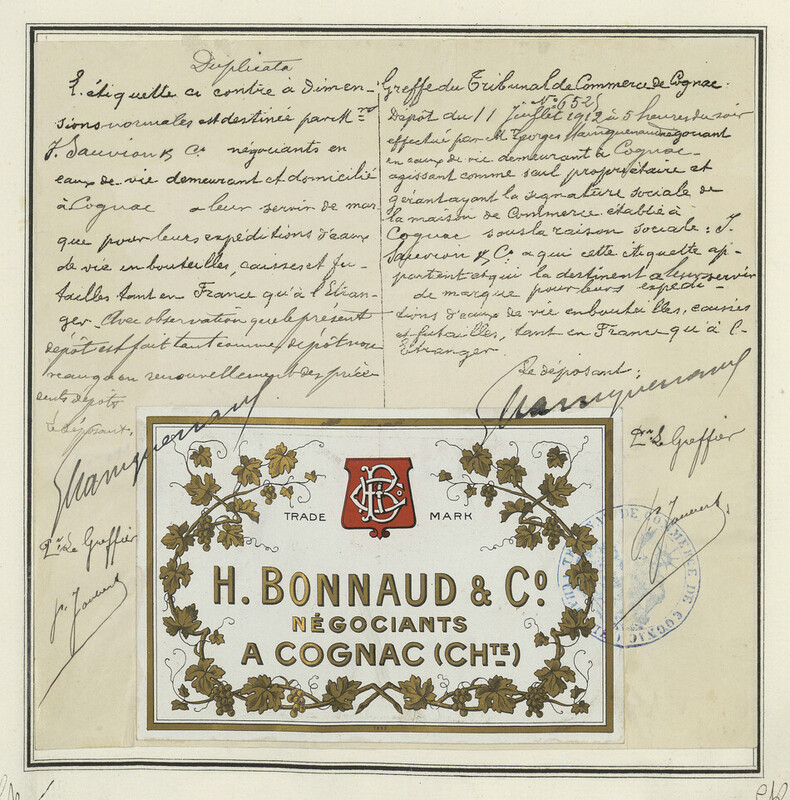 Duplicata
L'étiquette ci contre à dimen-
sions normales est destinée par M.rs
J. Sauvion & Cie négociants en
eaux-de-vie demeurant et domicilié
à Cognac a leur servir de mar
que pour leurs expéditions d'eaux
de vie en bouteilles, caisses et fu-
tailles tant en France qu'à l'Etran-
ger. Avec observation que le présent
dépôt est fait tant comme dépôt nou
veau qu'en renouvellement des précé
dents dépôts
Le déposant,
Pr. Le Greffier
Greffe du Tribunal de Commerce de Cognac.
No. 652
Dépôt du 11 Juillet 1912 à 5 heures du soir
effectué par M. Georges négociant
en eaux de vie demeurant à Cognac
agissant comme seul propriétaire et
gérant ayant la signature sociale de
la maison de Commerce établie à
Cognac sous la raison sociale : J.
Sauvion & Co. a qui cette étiquette ap-
partient et qui la destinent a leur servir
de marque pour leurs expédi-
tions d'eaux de vie en bouteilles, caisses
et futailles, tant en France qu'à l'
Etranger
Le déposant :
Pr. Le Greffier
TRADE MARK
H. BONNAUD & Co.
NÉGOCIANTS
A COGNAC (CHTE)
TRIBUNAL DE COMMERCE DE COGNAC